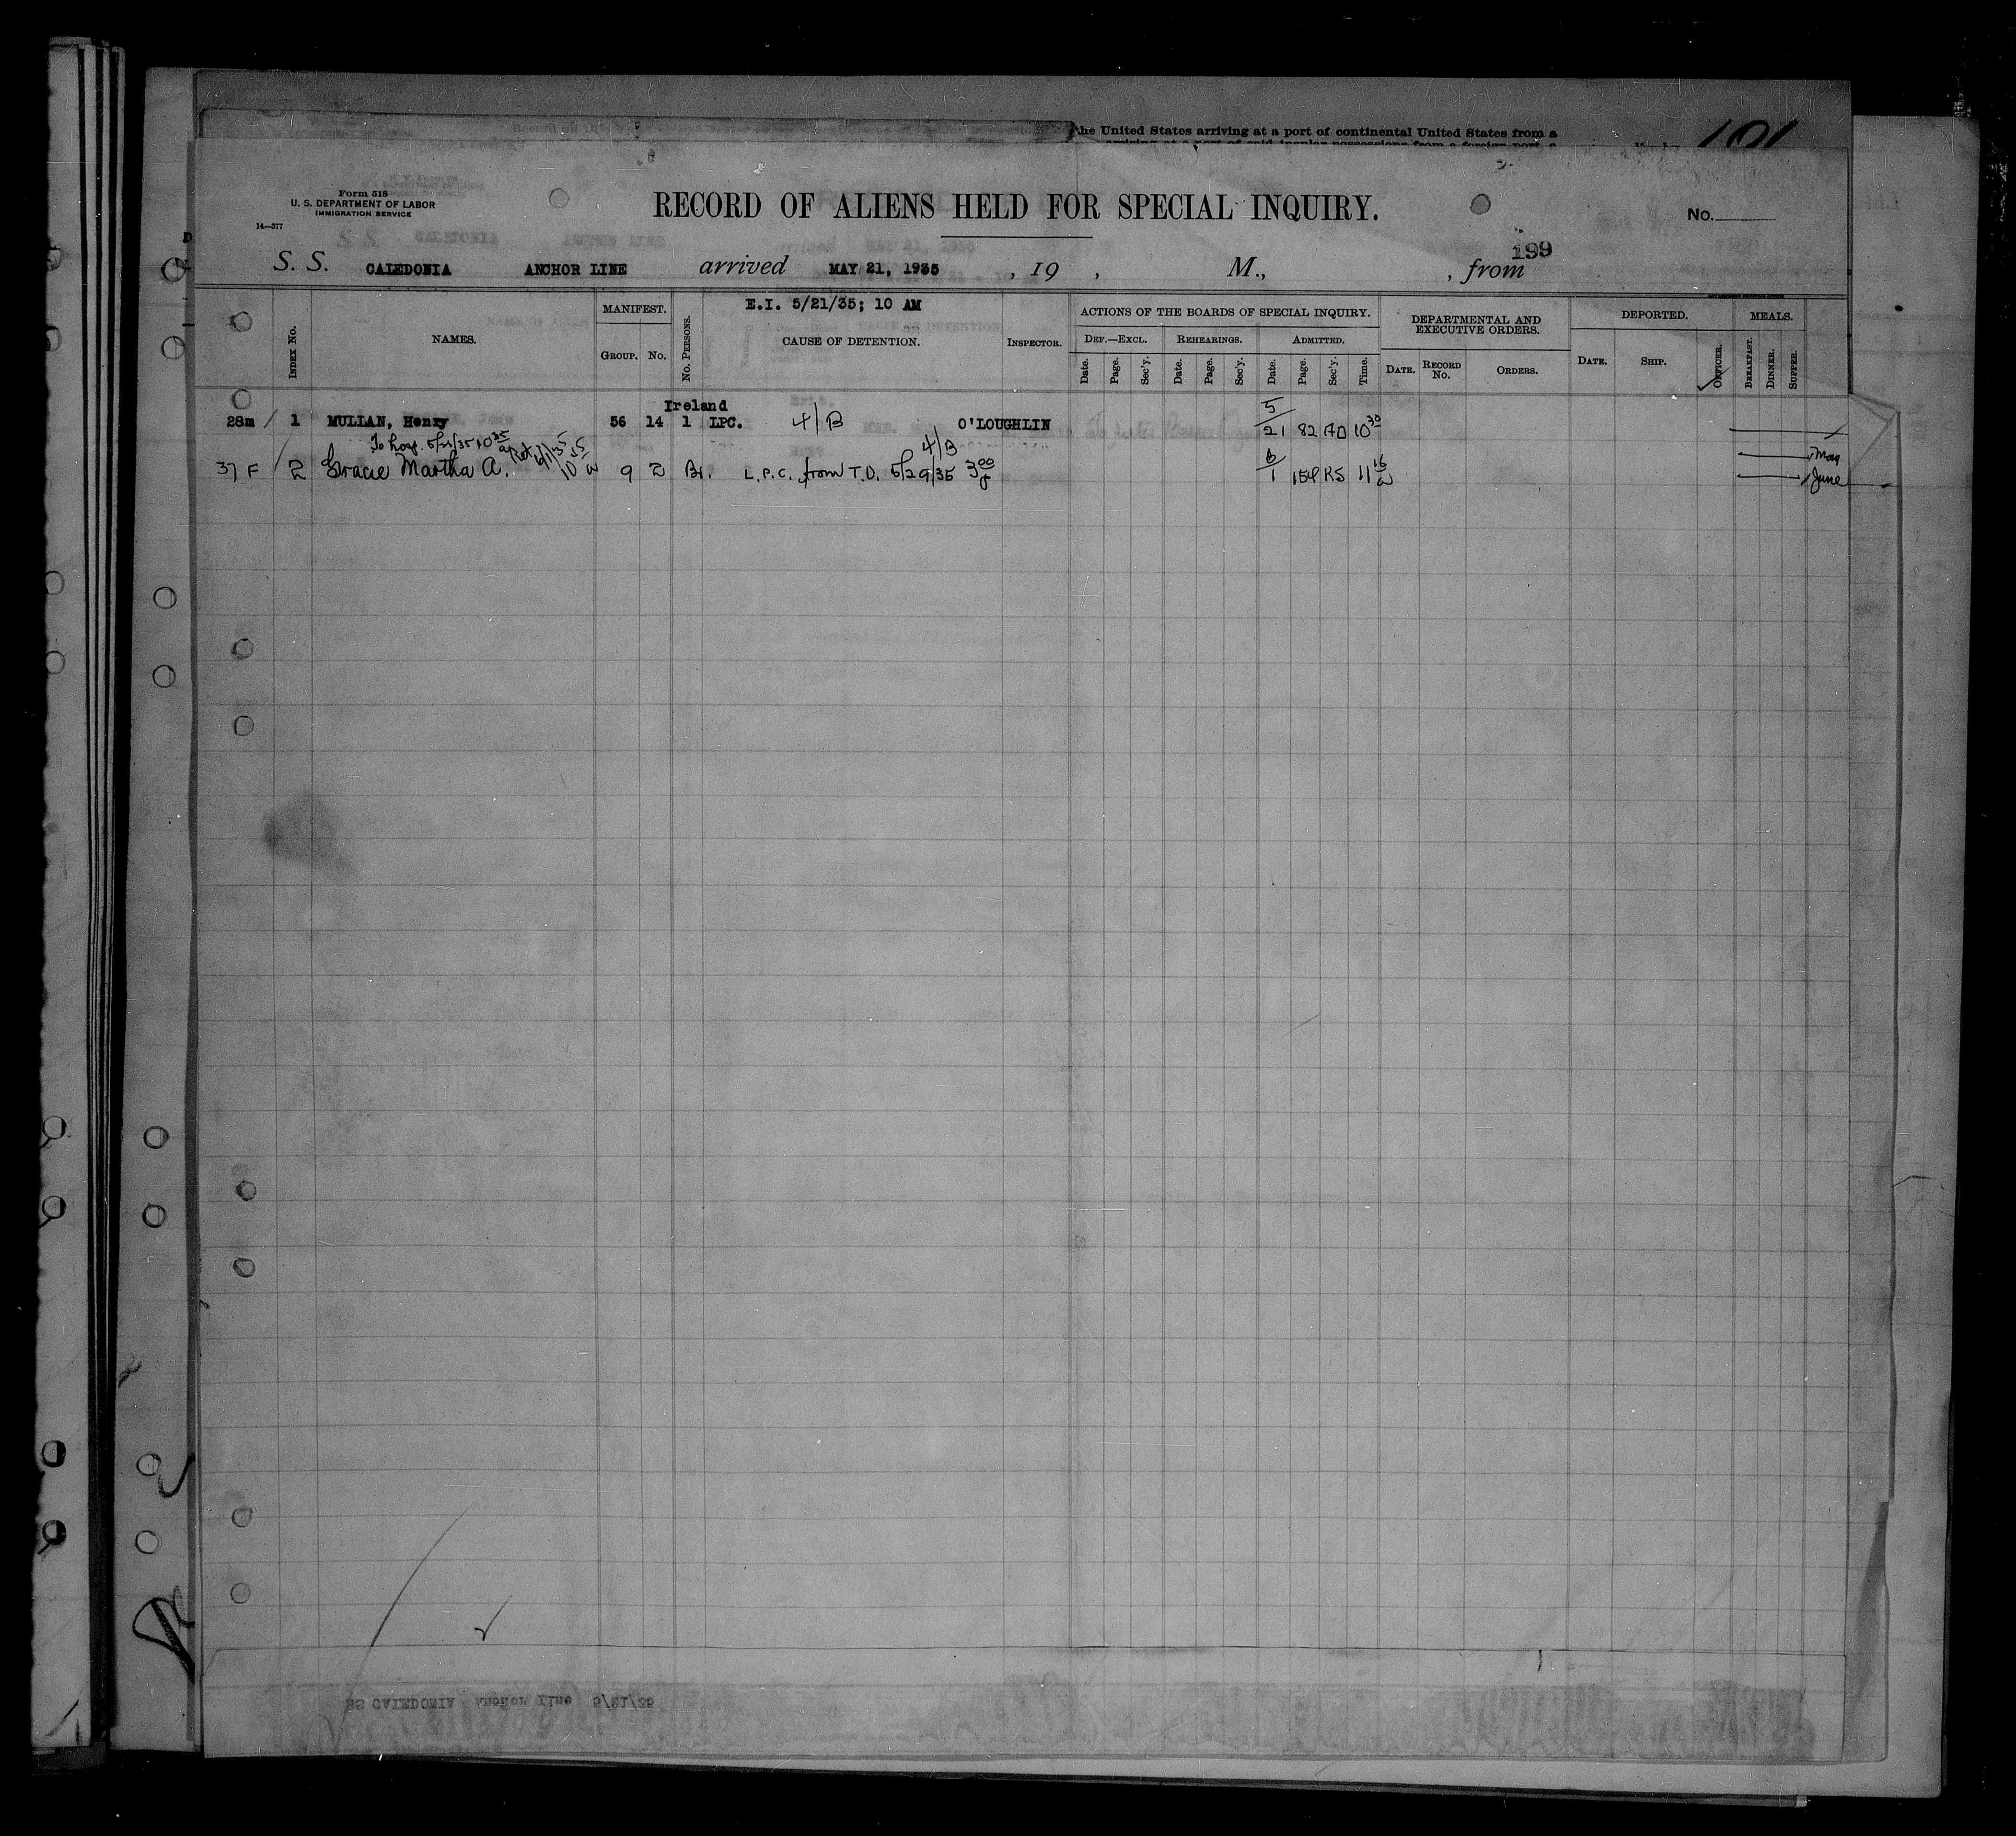 the United States arriving at a port of continental United States from a
191
Form 518
U. S. DEPARTMENT OF LABOR
IMMIGRATION SERVICE
14—377
RECORD OF ALIENS HELD FOR SPECIAL INQUIRY.
No.
199
S. S. CALEDONIA ANCHOR LINE arrived MAY 21, 1935 , 19 , M., , from
E.I. 5/21/35; 10 AM
Index No. NAMES. MANIFEST. Group. No. No. Persons. CAUSE OF DETENTION. Inspector. ACTIONS OF THE BOARDS OF SPECIAL INQUIRY. Def.—Excl. Date. Page. Sec'y. Rehearings. Date. Page. Sec'y. Admitted. Date. Page. Sec'y. Time. DEPARTMENTAL AND EXECUTIVE ORDERS. Date. Record No. Orders. DEPORTED. Date. Ship. Officer. MEALS. Breakfast. Dinner. Supper.
Ireland
28m 1 MULLAN, Henry 56 14 1 LPC. 4/B O'LOUGHLIN 5/21 82 AD 10 30
To hosp. 10 35 Ret 6/1/35 10 55
4/B
37 F 2 Gracie Martha A. 9 2 Br. L.P.C. from T.D. 5/29/35 3 00 6/1 154 KS 11 15
May
June
SS CALEDONIA Anchor Line 5/21/35